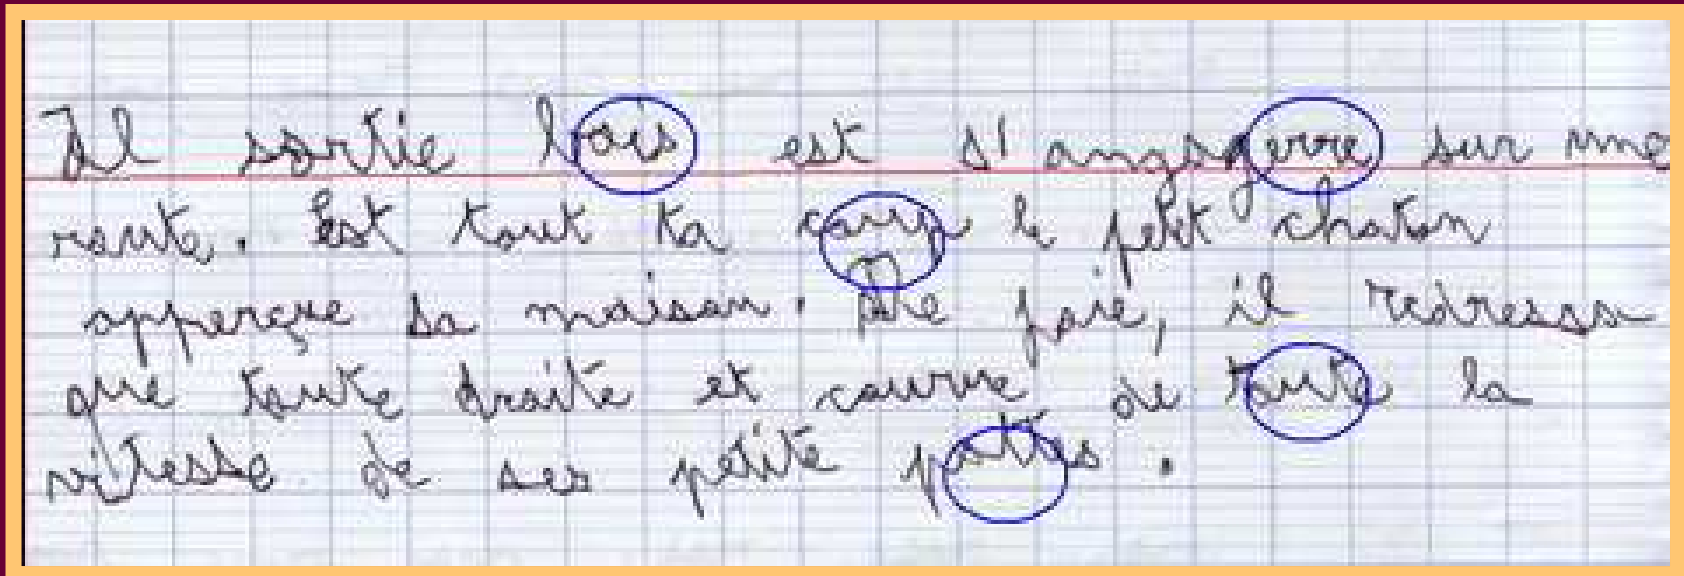 Il sortie bois est s'angagerre sur une
route. Est tout ta coup le petit chaton
apperçue sa maison. De joie, il redressa
que toute droite et courue de toute la
vitesse de ses petite pattes.